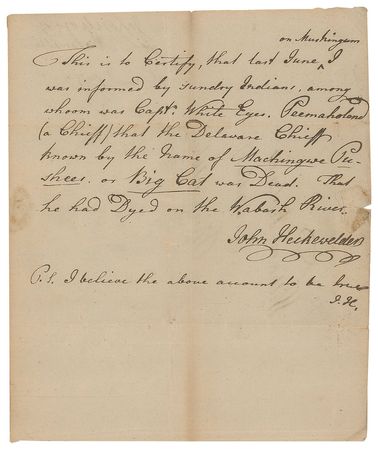 on Muskingum
This is to Certify, that last June ^ I
was informed by sundry Indians, among
whom was Capt. White Eyes, Peemaholend
(a Chieff) that the Delaware Chieff
known by the Name of Machingwe Pu-
shees, or Big Cat was Dead. That
he had Dyed on the Wabash River.
John Heckevelder
P.S. I believe the above account to be true
J. H.